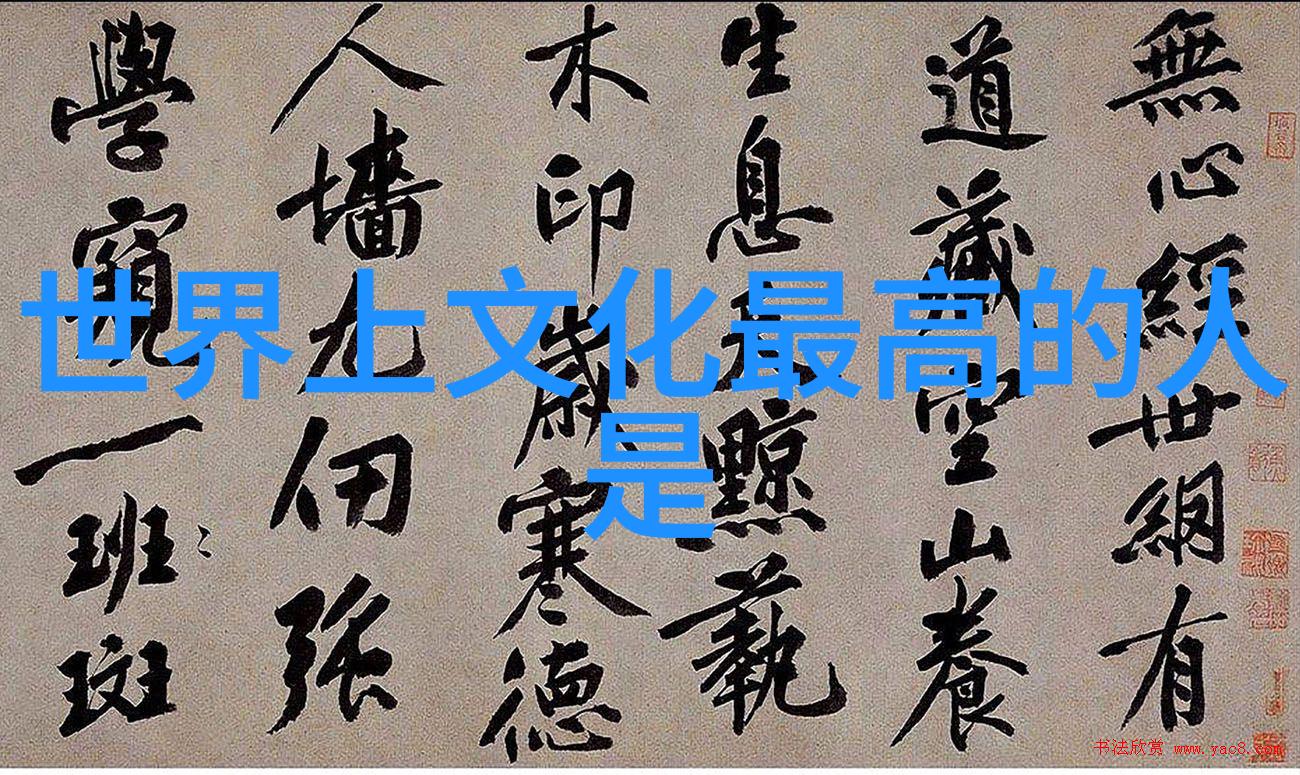 世界上文化最高的人
是
無心經世網有
道藏空山養
生息天黥蓺
木印歲寒德
人墻九仞強
學窺一班〻斑
书法欣赏 www.yac8.com